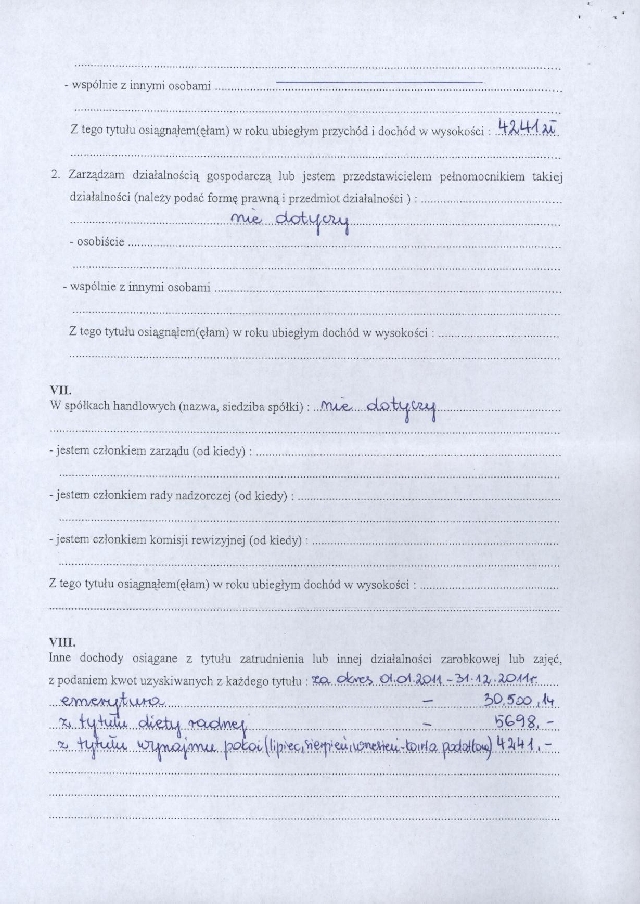 - wspólnie z innymi osobami
Z tego tytułu osiągnąłem(ęłam) w roku ubiegłym przychód i dochód w wysokości : 4241 zł
2. Zarządzam działalnością gospodarczą lub jestem przedstawicielem pełnomocnikiem takiej
działalności (należy podać formę prawną i przedmiot działalności ) :
nie dotyczy
- osobiście
- wspólnie z innymi osobami
Z tego tytułu osiągnąłem(ęłam) w roku ubiegłym dochód w wysokości :
VII.
W spółkach handlowych (nazwa, siedziba spółki) : nie dotyczy
- jestem członkiem zarządu (od kiedy) :
- jestem członkiem rady nadzorczej (od kiedy) :
- jestem członkiem komisji rewizyjnej (od kiedy) :
Z tego tytułu osiągnąłem(ęłam) w roku ubiegłym dochód w wysokości :
VIII.
Inne dochody osiągane z tytułu zatrudnienia lub innej działalności zarobkowej lub zajęć,
z podaniem kwot uzyskiwanych z każdego tytułu : za okres 01.01.2011 - 31.12.2011r.
emerytura - 30.500,14
z tytułu diety radnej - 5698,-
z tytułu wynajmu pokoi (lipiec, sierpień, wrzesień - karta podatkow) 4241,-